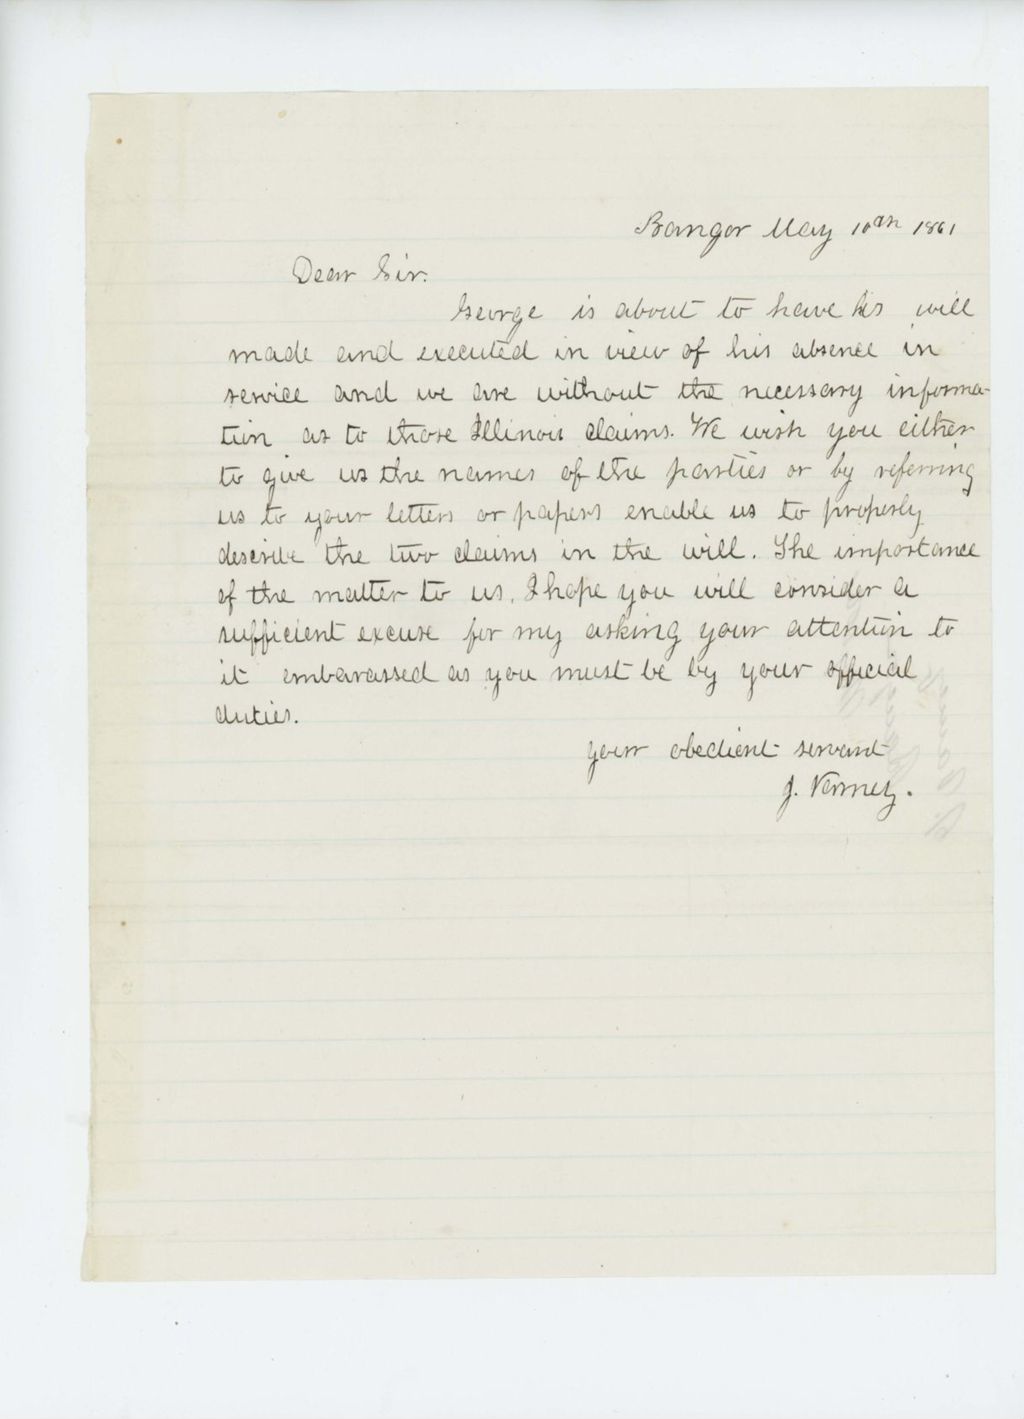 Bangor May 10th 1861
Dear Sir.
George is about to have his will
made and executed in view of his absence in
service and we are without the necessary informa-
tion as to those Illinois claims. We wish you either
to give us the names of the parties or by referring
us to your letters or papers enable us to properly
describe the two claims in the will. The importance
of the matter to us, I hope you will consider a
sufficient excuse for my asking your attention to
it embarassed as you must be by your official
duties.
your obedient servant
J.